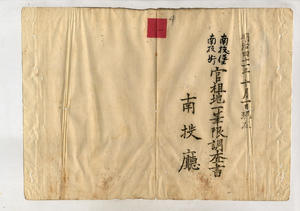 明治四十二年一月一日現在
南投堡
南投街
官租地一筆限調查書
南投廳